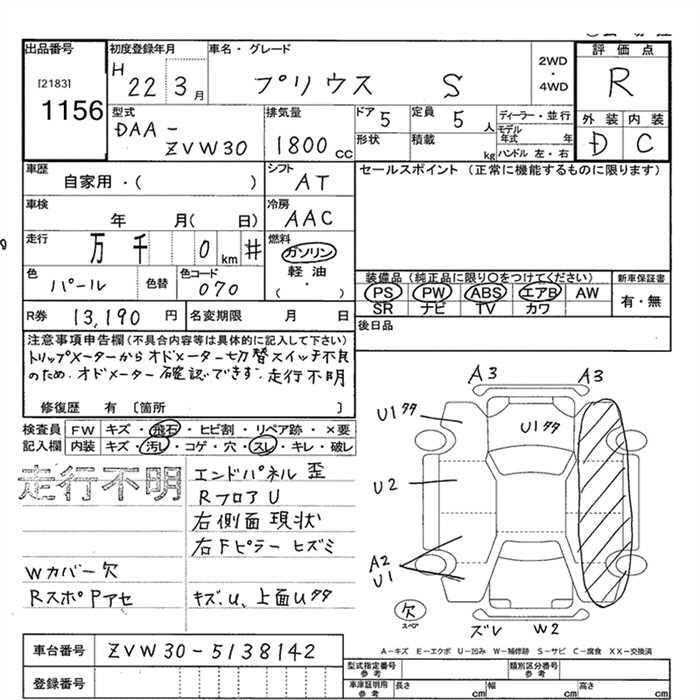 出品番号 初度登録年月 車名・グレード 評価点
[2183] 1156
H 22 3月 プリウス S 2WD・4WD R
型式 排気量 ドア 5 定員 5人 ディーラー・並行 外装 内装
DAA-ZVW30 1800cc 形状 積載 kg モデル年式 年 D C
ハンドル 左・右
車歴 シフト セールスポイント (正常に機能するものに限ります)
自家用・( ) AT
車検 年 月( 日) 冷房 AAC
走行 万千 0 km # 燃料 ガソリン 軽油 ( ・ )
色 パール 色替 色コード 070
装備品 (純正品に限り○をつけてください) 新車保証書
PS PW ABS エアB AW 有・無
SR ナビ TV カワ
R券 13,190円 名変期限 月 日 後日品
注意事項申告欄 (不具合内容等は具体的に記入して下さい)
トリップメーターからオドメーター切替スイッチ不良
のため.オドメーター確認できず.走行不明
修復歴 有 [箇所 ]
検査員 FW キズ・飛石・ヒビ割・リペア跡・×要
記入欄 内装 キズ・汚レ・コゲ・穴・スレ・キレ・破レ
走行不明 エンドパネル 歪
RフロアU
右側面現状
右Fピラー ヒズミ
Wカバー欠
RスポPアセ キズ.U、上面Uタタ
A3 A3
U1タタ U1タタ
U2
A2
U1
欠 スペア
ズレ W2
A-キズ E-エクボ U-凹み W-補修跡 S-サビ C-腐食 XX-交換済
車台番号 ZVW30-5138142
型式指定番号 参考 類別区分番号 参考
登録番号
車庫証明用 参考 長さ cm 幅 cm 高さ cm